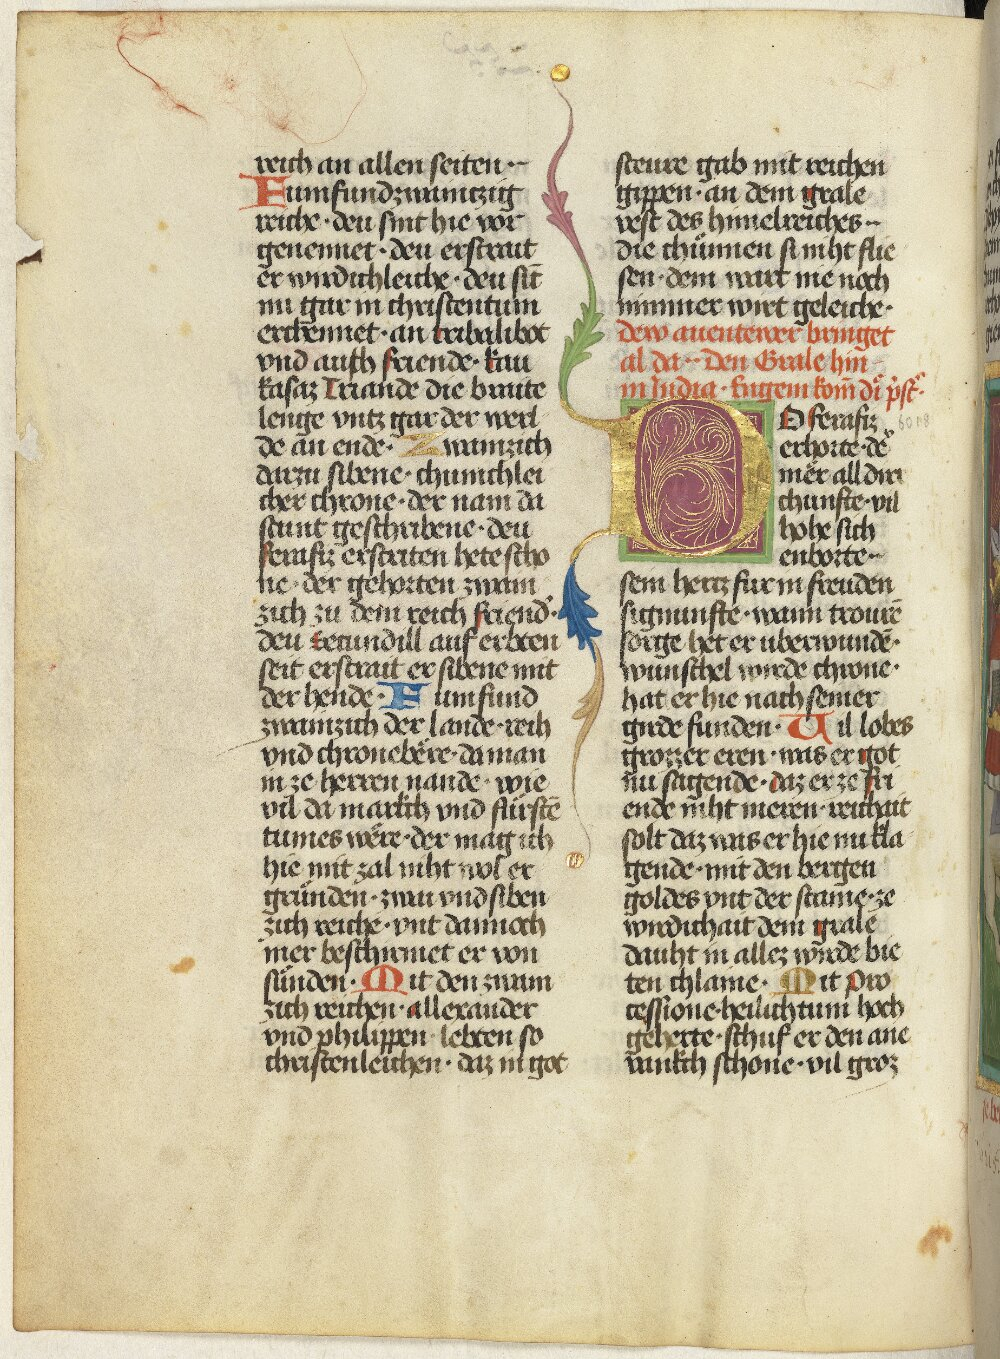 reich an allen seiten ·
Fumfundzwaintzig
reiche · deu sint hie vor
genennet · deu erstrait
er wirdichleiche · deu sit
nu gar in christentum
erchennet · an tribalibot
vnd auch friende · kau
kasaz Triande die braite
lenge vntz gar der werl
de an ende · Zwainzich
darzu sibene · chunichlei
cher chrone · der nam da
staint geschribene · deu
ferafiz erstriten hete scho
ne · der gehorten zwain
zich zu dem reich friend ·
deu secundill auf erben
seit erstrait er sibene mit
der hende · Fumfund
zwainzich der lande · reih
vnd chronebëre · da man
in ze herren nande · wie
vil da markch vnd fürstē
tumes wëre · der mag ich
hie mit zal niht wol er
gründen · zwai vnd siben
zich reiche · vnt dannoch
mer beschirmet er von
sünden · Mit den zwain
zich reichen · allexander
vnd philippen · lebten so
christenleichen · daz in got
steure gab mit reichen
gippen · an dem grale
vest des himelreiches ·
die chünnen si niht flie
sen · dem wart nie noch
nimmer wirt geleiche ·
dew auentewer bringet
al da · Den Grale hin
in India · gegem kom̄ di p̄st
DO ferafiz
erhorte · de
mër all dirr
chunfte · vil
hohe sich
enborte ·
sein hertz für in freuden
sigmunfte · wann trourē
sorge het er uberwundē ·
wunschel wirde chrone ·
hat er hie nach seiner
girde funden · Uil lobes
grozzer eren · was er got
nu sagende · daz er ze fri
ende niht meren · reichait
solt daz was er hie nu kla
gende · mit den bergen
goldes vnt der staine · ze
wirdichait dem grale
dauht in allez würde bie
ten chlaine · Mit pro
cessione · heilichtum hoch
geherte · schuf er den ane
vankch schone · vil groz